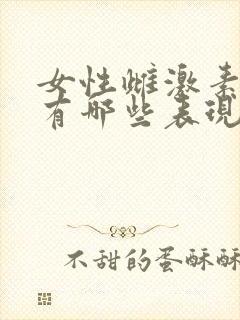 女性雌激素
有哪些表现
不甜的蛋酥酥